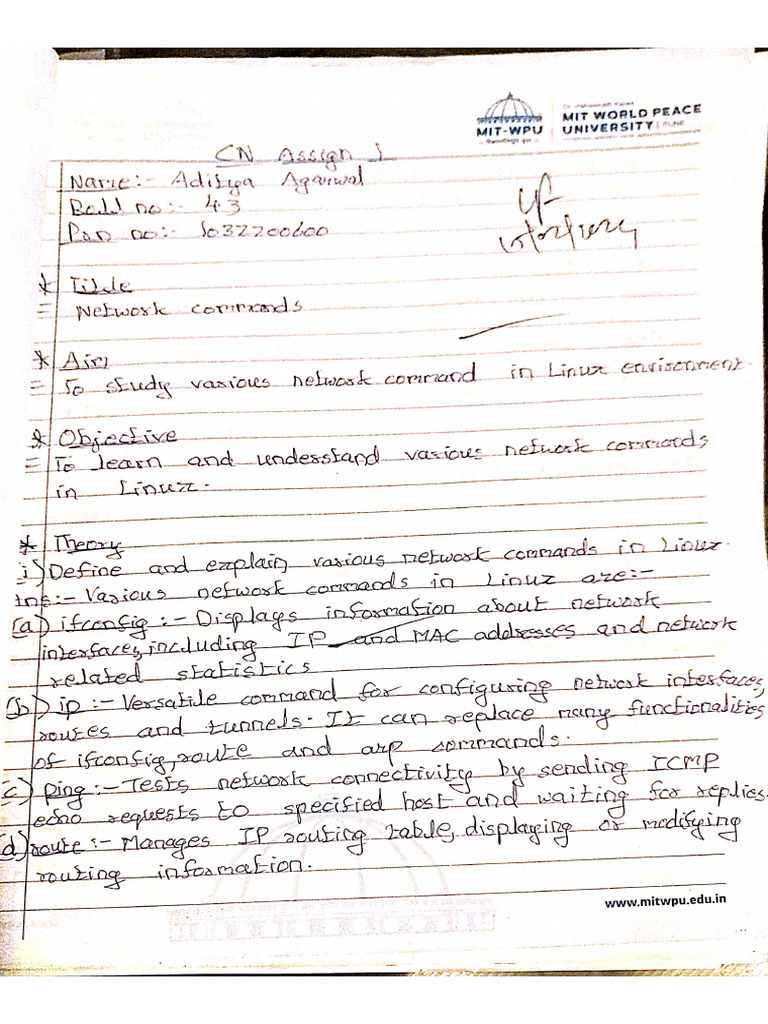 MIT-WPU
MIT WORLD PEACE
UNIVERSITY | PUNE
CN Assign 1
Name:- Aditya Agarwal
Roll no:- 43
Prn no:- 1032200600
* Title
= Network commands
* Aim
= To study various network command in Linux environment.
* Objective
= To learn and understand various network commands
in Linux.
* Theory
i) Define and explain various network commands in Linux.
Ans:- Various network commands in Linux are:-
(a) ifconfig:- Displays information about network
interfaces, including IP and MAC addresses and network
related statistics
(b) ip:- Versatile command for configuring network interfaces,
routes and tunnels. It can replace many functionalities
of ifconfig, route and arp commands.
c) ping:- Tests network connectivity by sending ICMP
echo requests to specified host and waiting for replies.
d) route:- Manages IP routing table, displaying or modifying
routing information.
www.mitwpu.edu.in